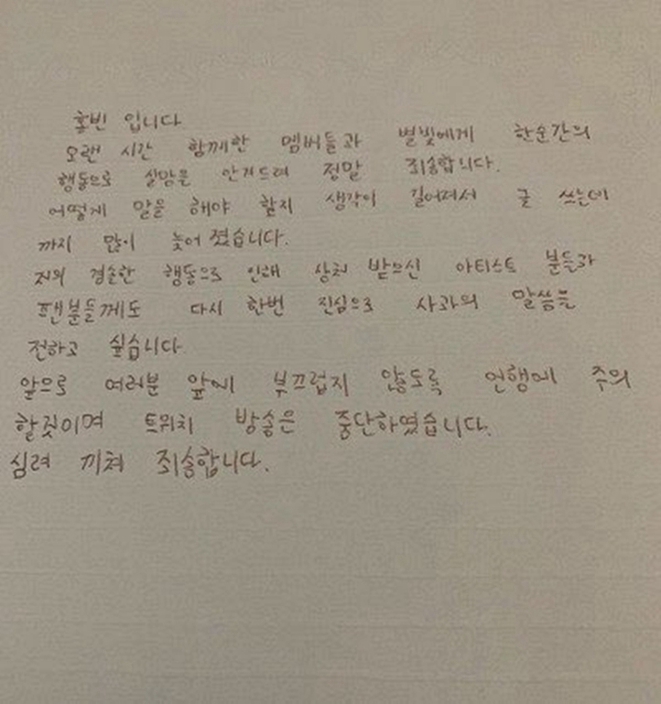 홍빈 입니다
오랜 시간 함께한 멤버들과 별빛에게 한순간의
행동으로 실망을 안겨드려 정말 죄송합니다.
어떻게 말을 해야 할지 생각이 길어져서 글 쓰는데
까지 많이 늦어 졌습니다.
저의 경솔한 행동으로 인해 상처 받으신 아티스트 분들과
팬분들께도 다시 한번 진심으로 사과의 말씀을
전하고 싶습니다
앞으로 여러분 앞에 부끄럽지 않도록 언행에 주의
할것이며 트위치 방송은 중단하였습니다.
심려 끼쳐 죄송합니다.